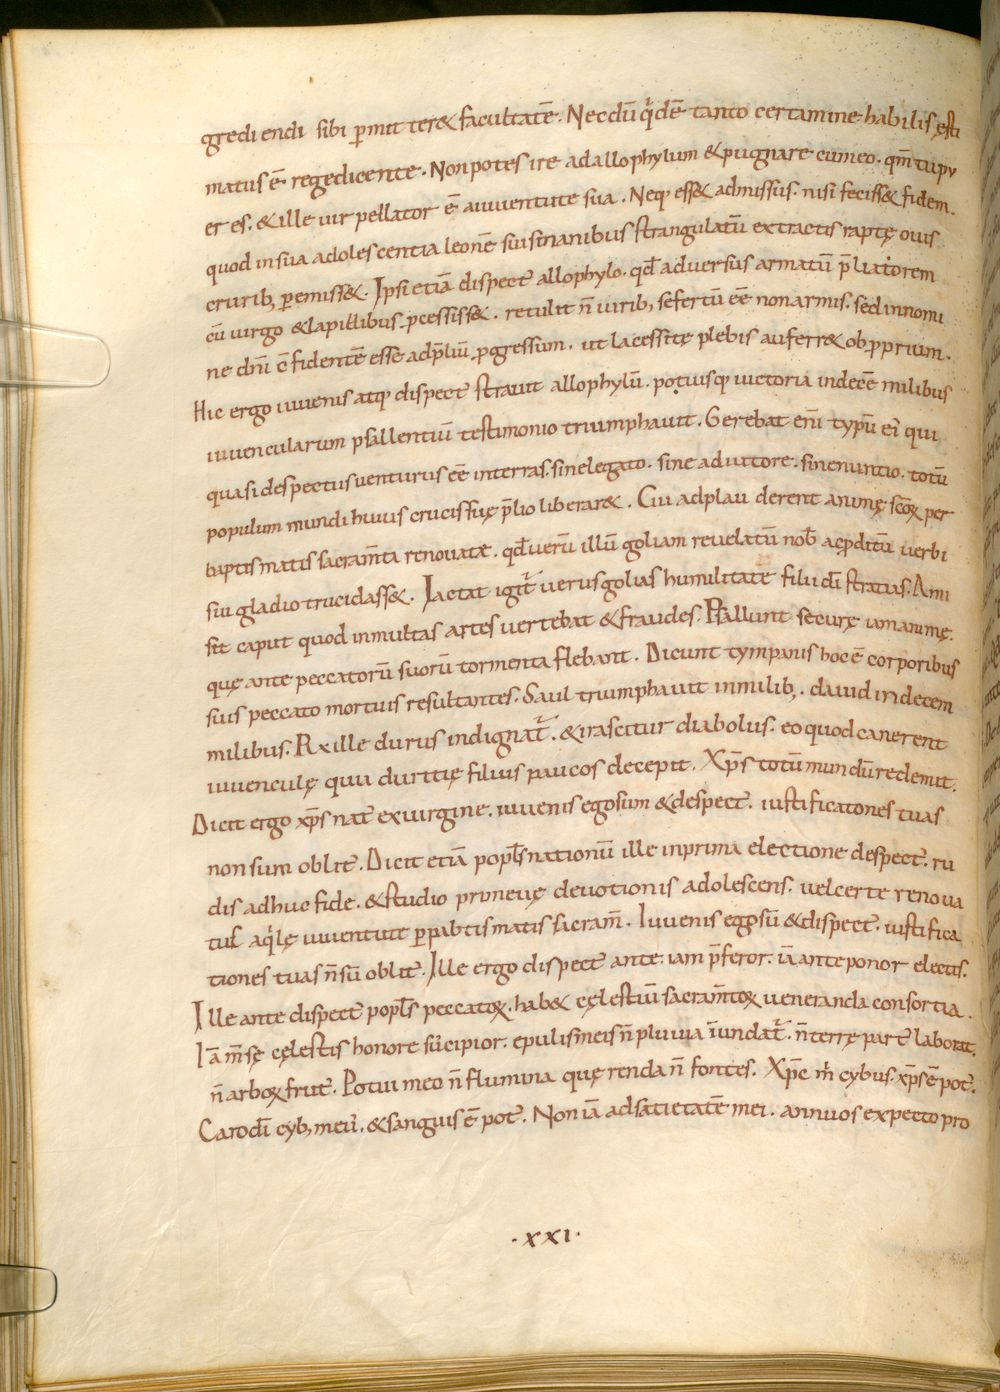 ggrediendi sibi p̄mit ter& facultatē. Necdū q̇dē tanto certamine habilis ęsti
matus ē rege dicente. Non potes ire ad allophylum & pugnare cum eo. qm̄ tu pu
er es. & ille uir pellator ē a iuuentute sua. Neq; ess& admissus. nisi feciss& fidem.
quod in sua adolescentia leonē suis manibus strangulatū extractis raptę ouis
crurib; p̄emiss&. Ipsi etiā dispect allophylo. qd̄ aduersus armatū p̄liatorem
cū uirgo & lapillibus p̄cessiss&. retulit n̄ uirib; se fertū ēē non armis. sed in nomi
ne dn̄i c̄fidentē esse ad p̄liū p̄gressum. ut lacessitę plebis auferr& ob p̄prium.
Hic ergo iuuenis atq; dispect strauit allophylū. potiusq; uictoria in decē milibus
iuuencularum psallentiū testimonio triumphauit. Gerebat eni typū ei qui
quasi despectus uenturus ēē in terras. sine legato. sine adiutore. sine nuntio. totū
populum mundi huius crucis suę p̄lio liberar&. Cui adplauderent animę scōꝝ per
baptismatis sacram̄ta renouatæ. qd̄ uerū illū goliam reuelatū nob̄ ac p̄ditū uerbi
sui gladio trucidass&. Iactat igit̄ uerus golias humilitate filii dī stratus. Ami
sit caput quod in multas artes uertebat & fraudes. Psallunt securę iam animę.
quę ante peccatorū suorū tormenta flebant. Dicunt tympanis hoc ē corporibus
suis peccato mortuis resultantes. Saul triumphauit in milib;. dauid in decem
milibus. Rex ille durus indignat̄. & irascitur diabolus. eo quod canerent
iuuenculę quia duritię filius paucos decepit. Xp̄s totū mundū redemit.
Dicit ergo xp̄s nat ex uirgine. iuuenis ego sum & despect. iustificationes tuas
non sum oblit. Dicit etiā popl̄s nationū ille in prima electione despect. ru
dis adhuc fide. & studio primeuę deuotionis adolescens. uel certe renoua
tus aq̇lę iuuentute p̄ pabtismatis sacram̄. Iuuenis ego sū & dispect. iustifica
tiones tuas n̄ sū oblit. Ille ergo dispect ante. iam p̄feror. iā anteponor electis.
Ille ante dispect popl̄s peccatoꝝ. hab& cęlestiū sacram̄toꝝ ueneranda consortia.
Iā m̄sę cęlestis honore suscipior. epulis meis n̄ pluuia īundat̄. n̄ terrę part laborat.
n̄ arboꝝ fruct. Potui meo n̄ flumina quęrenda n̄ fontes. Xp̄c m̄ cybus. xp̄s ē pot.
Caro dī cyb; meus. & sanguis ē pot. Non iā ad satietatē mei. annuos expecto pro
·xxi·